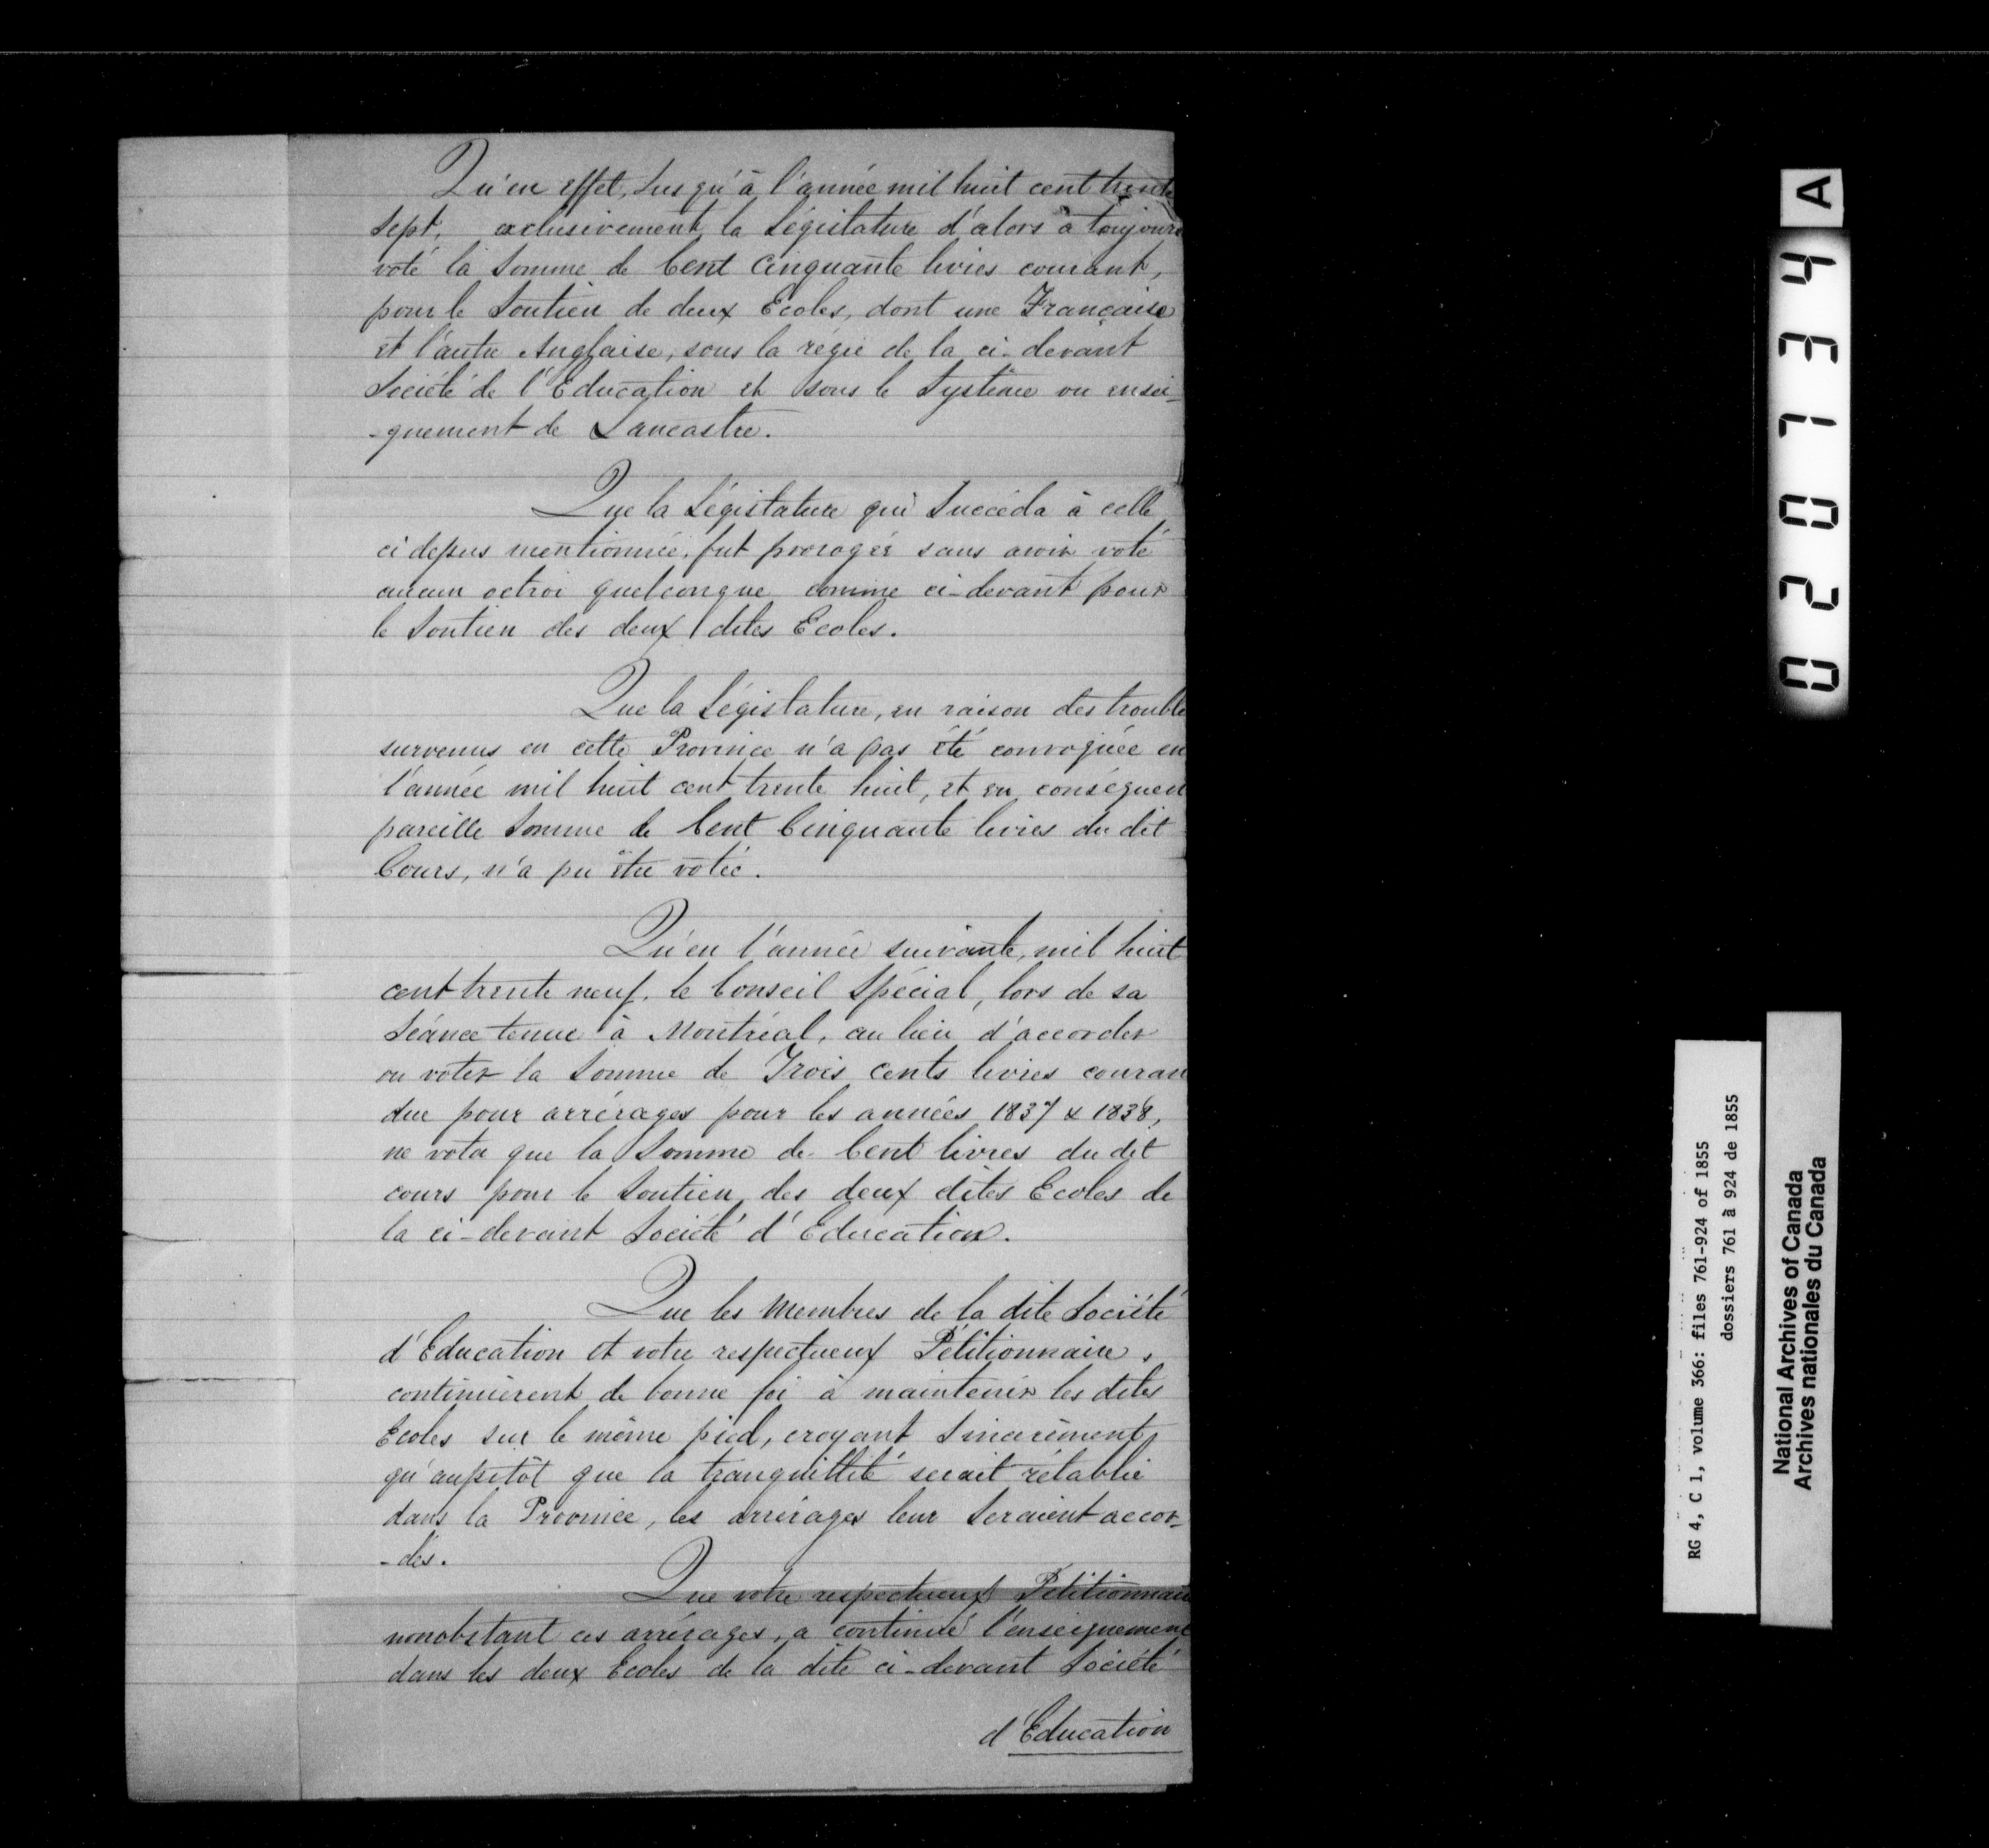 Qu'en effet, Jusqu'à l'année mil huit cent trente
Sept, exclusivement, la Législature d'alors a toujours
voté la Somme de Cent Cinquante livres courant,
pour le Soutien de deux Ecoles, dont une Française
et l'autre Anglaise, sous la régie de la ci-devant
Société de l'Education et sous le Système ou ensei-
-gnement de Lancastre.
Que la Législature qui Succéda à celle
ci dessus mentionnée, fut prorogée sans avoir voté
aucun octroi quelconque comme ci-devant pour
le Soutien des deux dites Ecoles.
Que la Législature, en raison des trouble
survenus en cette Province n'a pas été convoquée en
l'année mil huit cent trente huit, et en conséquen
pareille Somme de Cent Cinquante livres du dit
Cours, n'a pu être votée.
Qu'en l'année suivante, mil huit
cent trente neuf, le Conseil Spécial, lors de sa
Séance tenue à Montréal, au lieu d'accorder
ou voter la Somme de Trois cents livres couran
due pour arrérages pour les années 1837 & 1838,
ne vota que la Somme de Cent livres du dit
cours pour le Soutien des deux dites Ecoles de
la ci-devant Société d'Education.
Que les Membres de la dite Société
d'Education et votre respectueux Pétitionnaire,
continuèrent de bonne foi à maintenir les dites
Ecoles sur le même pied, croyant Sincèrement,
qu'aussitôt que la tranquillité serait rétablie
dans la Province, les arrérages leur Seraient accor-
-dés.
Que votre respectueux Pétitionnaire
nonobstant ces arrérages, a continué l'enseignement
dans les deux Ecoles de la dite ci-devant Société
d'Education
020734 A
RG 4, C 1, volume 366: files 761-924 of 1855
dossiers 761 à 924 de 1855
National Archives of Canada
Archives nationales du Canada